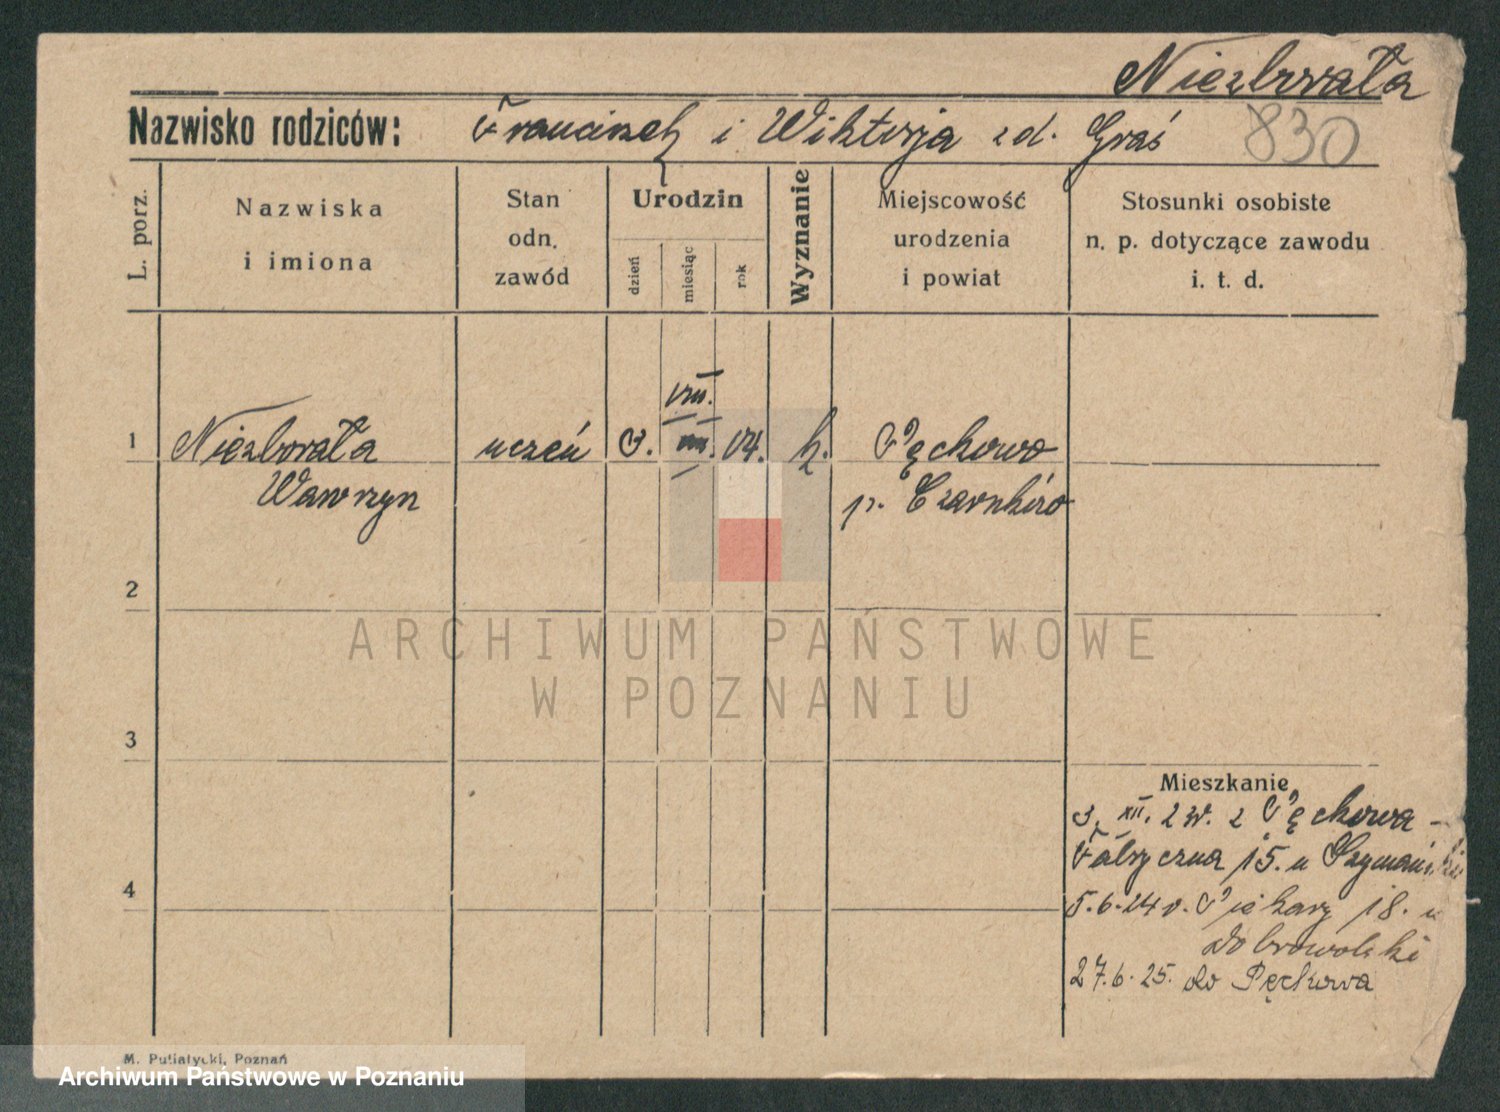 Niezborała
Nazwisko rodziców: Franciszek i Wiktorja zd. Graś 830
L. porz.
Nazwiska
i imiona
Stan
odn.
zawód
Urodzin
dzień
miesiąc
rok
Wyznanie
Miejscowość
urodzenia
i powiat
Stosunki osobiste
n. p. dotyczące zawodu
i. t. d.
VIII.
1 Niezborała uczeń 3. k. Pęckowo
Wawrzyn p. Czarnków
2
ARCHIWUM PAŃSTWOWE
W POZNANIU
3
Mieszkanie
3. XII. z Pęckowa -
Fabryczna 15. u Szymański
4
5.6.24 v. Piekary 18. u
Dobrowolski
27.6.25. do Pęckowa
M. Putiatycki, Poznań
Archiwum Państwowe w Poznaniu